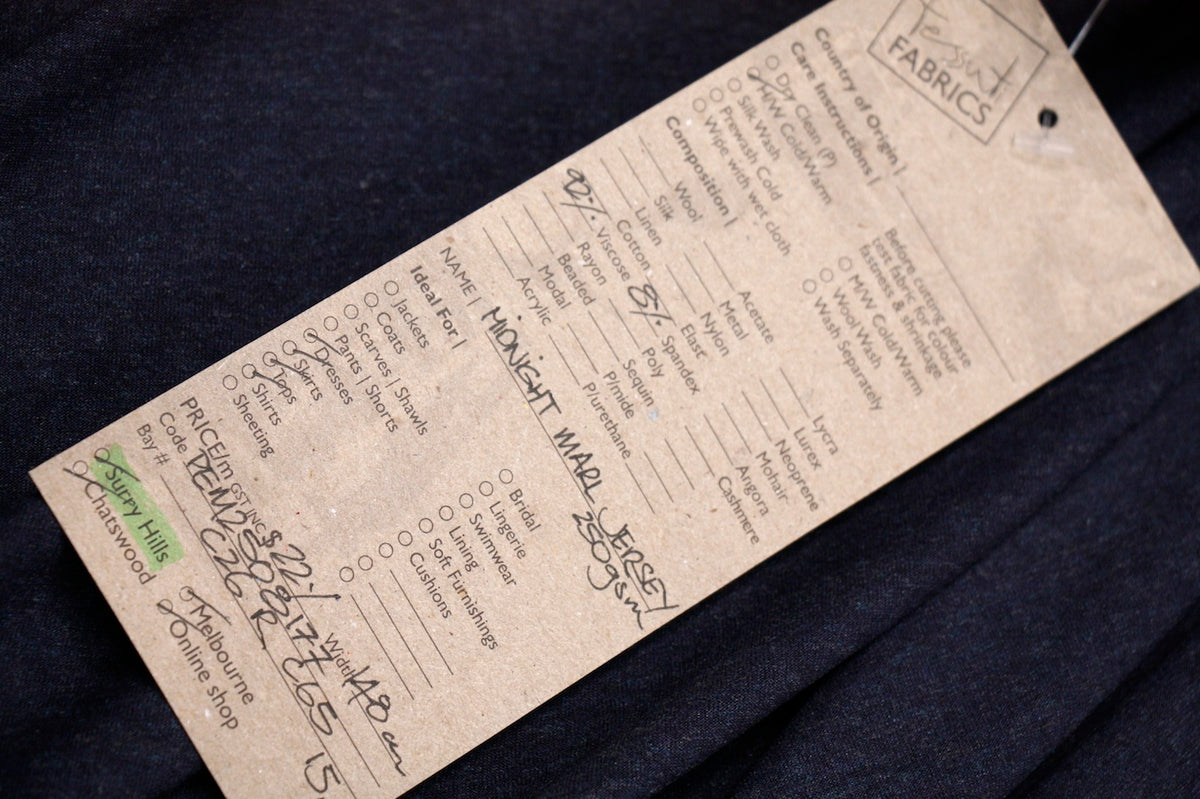 Tessuti
FABRICS
Country of Origin |
Care Instructions |
Dry Clean (P)
H/W Cold/Warm
Silk Wash
Prewash Cold
Wipe with wet cloth
Before cutting please
test fabric for colour
fastness & shrinkage
M/W Cold/Warm
Wool Wash
Wash Separately
Composition |
Wool Acetate Lycra
Silk Metal Lurex
Linen Nylon Neoprene
Cotton Elast Mohair
92% Viscose 8% Spandex Angora
Rayon Poly Cashmere
Beaded Sequin
Modal P/mide
Acrylic P/urethane
NAME | MIDNIGHT MARL JERSEY
250gsm
Ideal For |
Jackets
Coats
Scarves | Shawls
Pants | Shorts
Dresses
Skirts
Tops
Shirts
Sheeting
Bridal
Lingerie
Swimwear
Lining
Soft Furnishings
Cushions
PRICE/m GST INC $22 Width 148cm
Code
Bay # C26
Surry Hills Melbourne
Chatswood Online shop